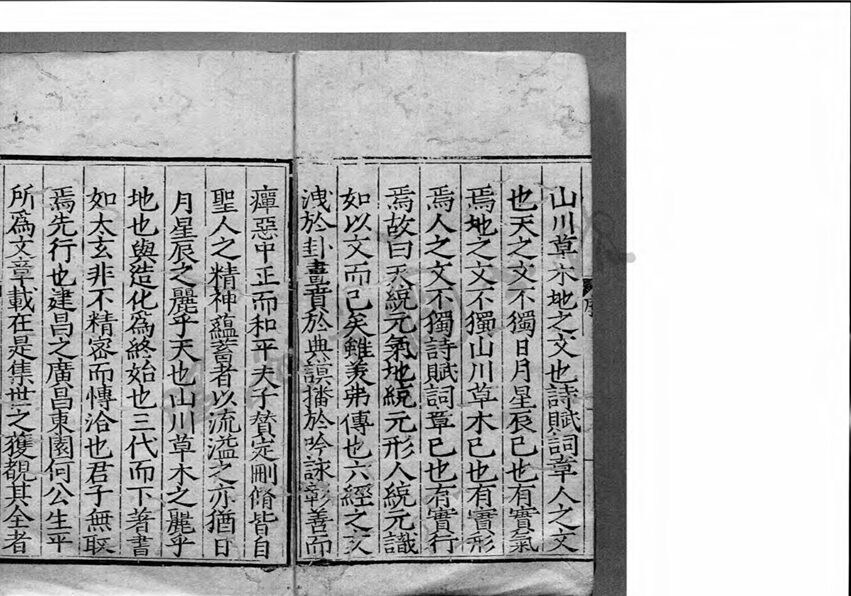 山川草木地之文也詩賦詞章人之文
也天之文不獨日月星辰已也有實氣
焉地之文不獨山川草木已也有實形
焉人之文不獨詩賦詞章已也有實行
焉故曰天統元氣地統元形人統元識
如以文而已矣雖美弗傳也六經之文
洩於卦畫賁於典謨播於吟詠彰善而
癉惡中正而和平夫子賛定刪脩皆自
聖人之精神蘊蓄者以流溢之亦猶日
月星辰之麗乎天也山川草木之麗乎
地也與造化為終始也三代而下著書
如太玄非不精宻而愽洽也君子無取
焉先行也建昌之廣昌東園何公生平
所為文章載在是集世之獲覩其全者
序